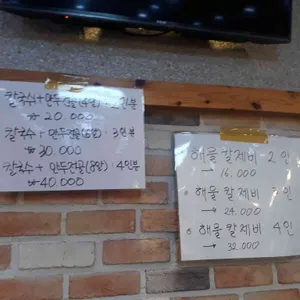 칼국수 + 만두전골(4알) : 2인분
⇒ 20.000
칼국수 + 만두전골(6알) · 3인분
⇒ 30.000
칼국수 + 만두전골(8알) · 4인분
⇒ 40.000
해물 칼제비 2인
→ 16.000
해물 칼제비 3인
→ 24.000
해물 칼제비 4인
→ 32.000